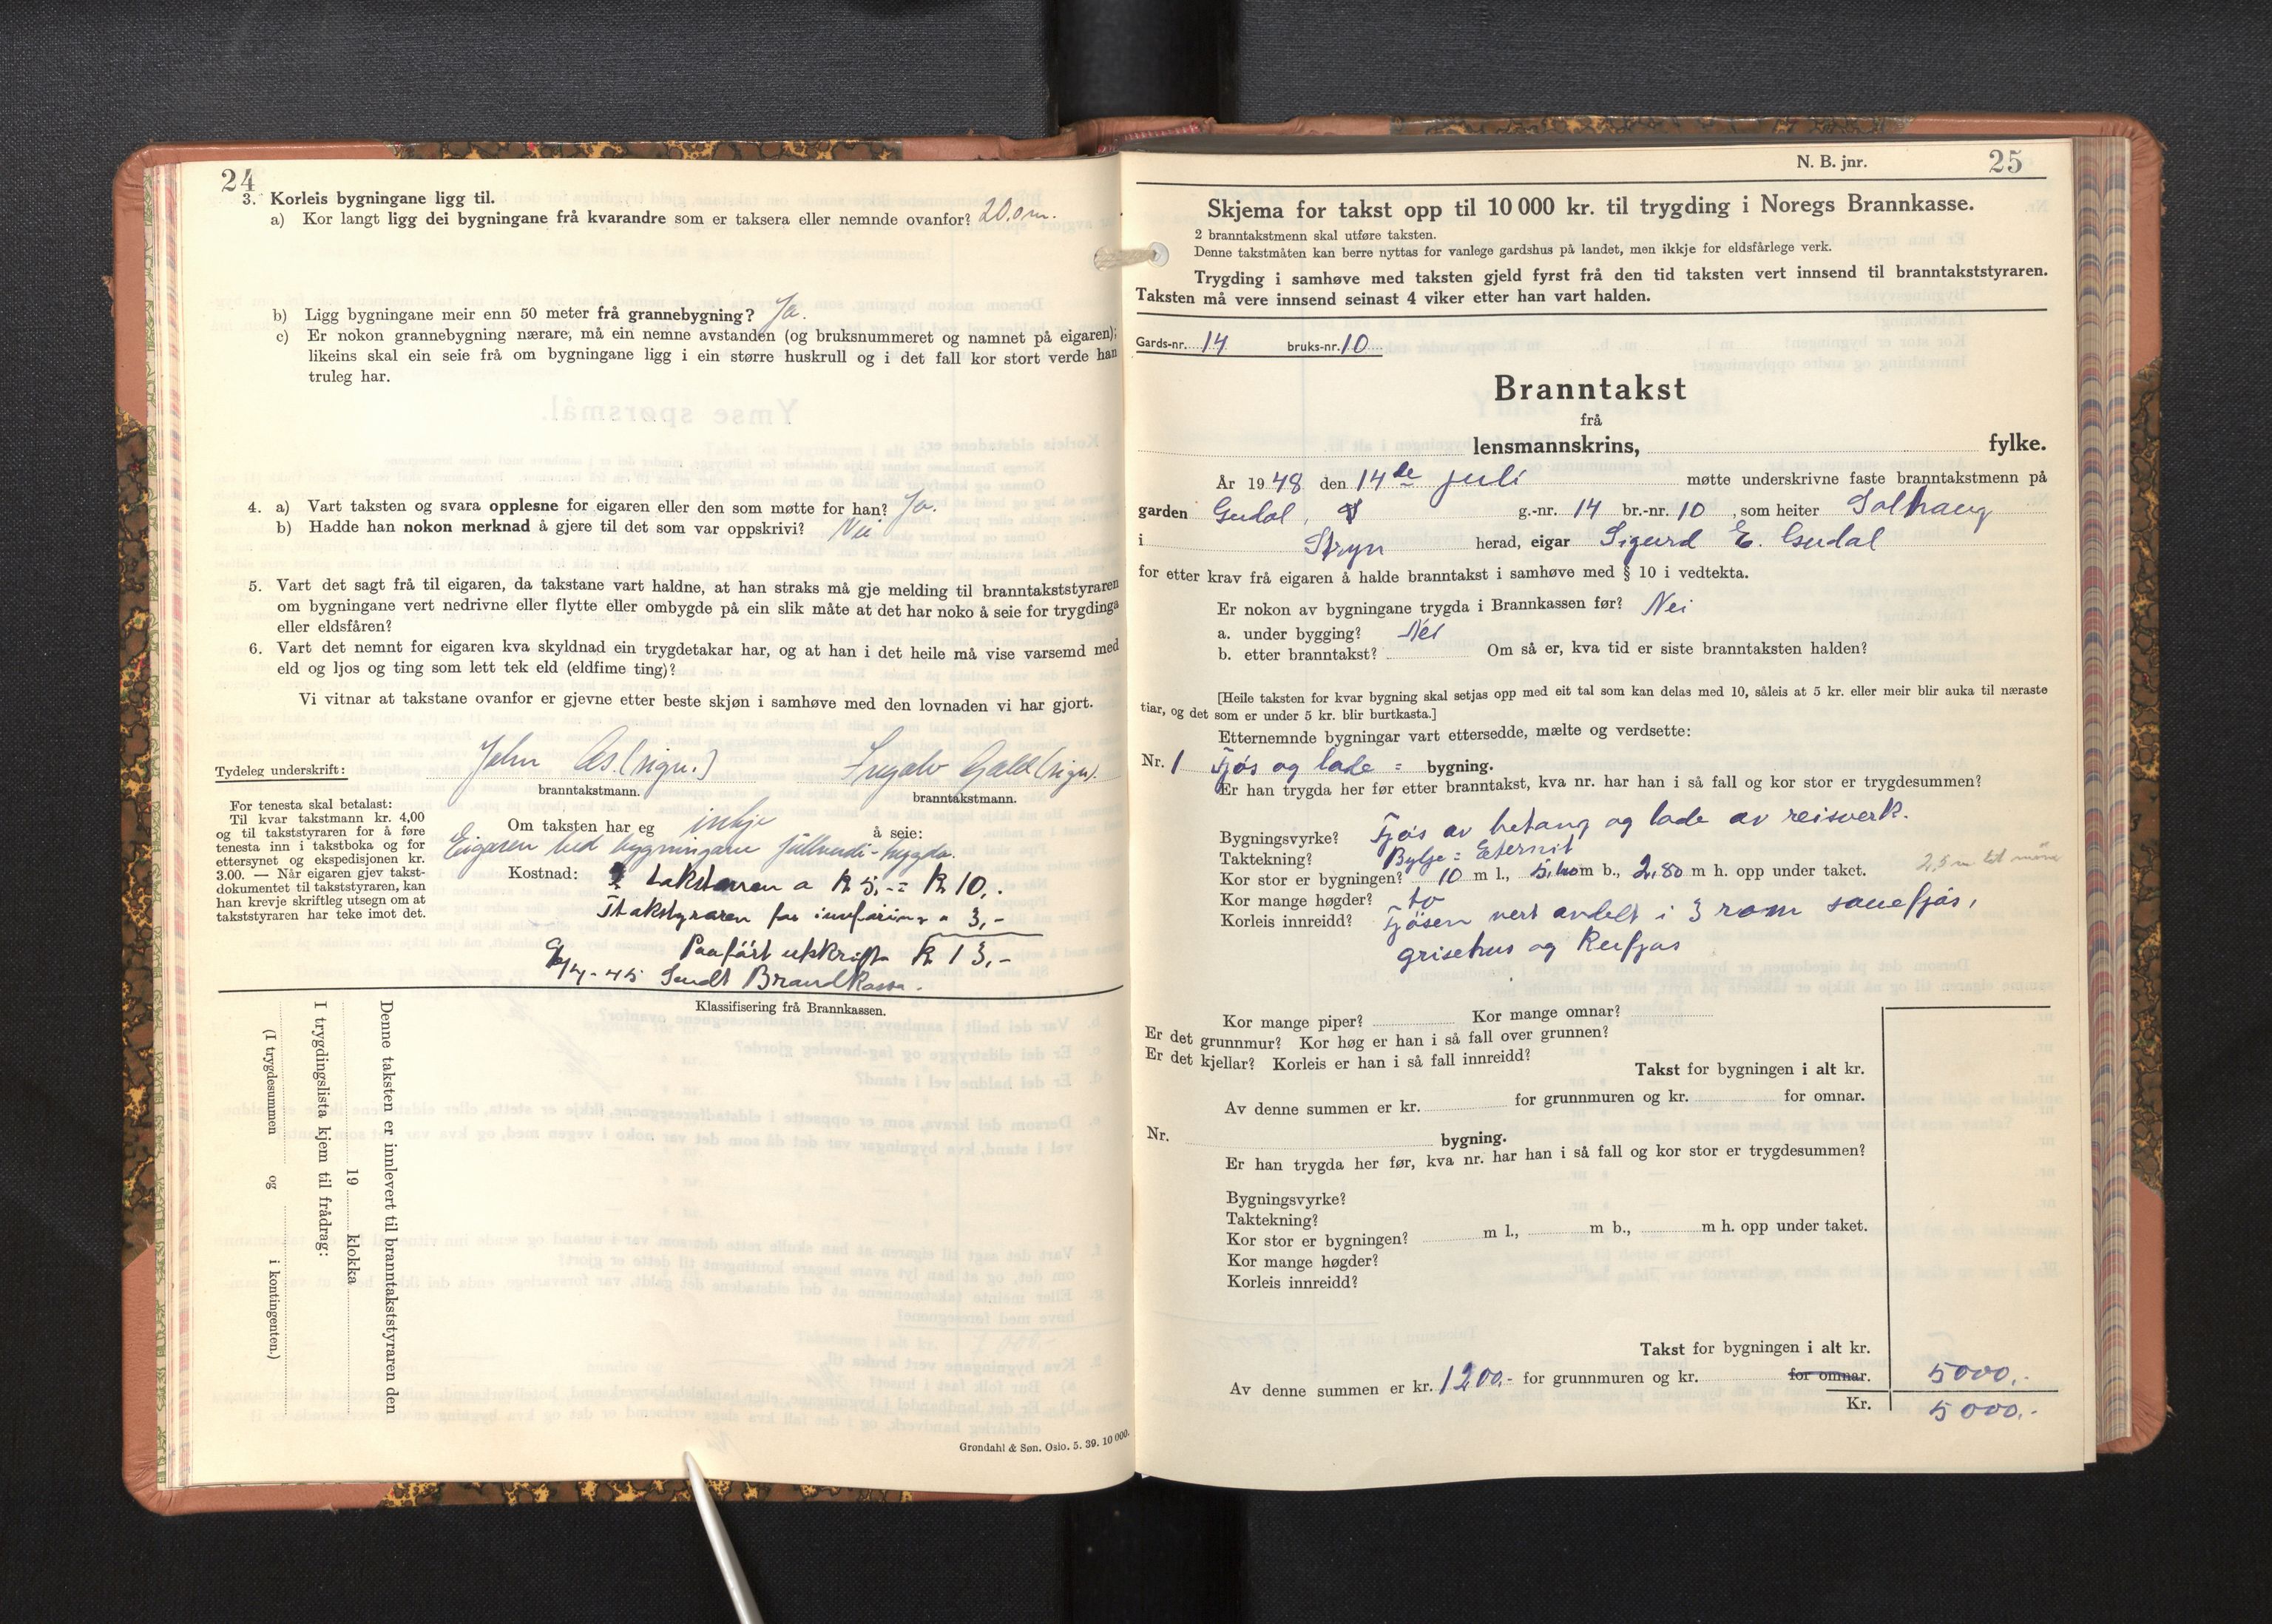 24
3. Korleis bygningane ligg til.
a) Kor langt ligg dei bygningane frå kvarandre som er taksera eller nemnde ovanfor? 20,0 m.
b) Ligg bygningane meir enn 50 meter frå grannebygning? Ja.
c) Er nokon grannebygning nærare, må ein nemne avstanden (og bruksnummeret og namnet på eigaren);
likeins skal ein seie frå om bygningane ligg i ein større huskrull og i det fall kor stort verde han
truleg har.
4. a) Vart taksten og svara opplesne for eigaren eller den som møtte for han? Ja.
b) Hadde han nokon merknad å gjere til det som var oppskrivi? Nei
5. Vart det sagt frå til eigaren, da takstane vart haldne, at han straks må gje melding til branntakststyraren
om bygningane vert nedrivne eller flytte eller ombygde på ein slik måte at det har noko å seie for trygdinga
eller eldsfåren?
6. Vart det nemnt for eigaren kva skyldnad ein trygdetakar har, og at han i det heile må vise varsemd med
eld og ljos og ting som lett tek eld (eldfime ting)?
Vi vitnar at takstane ovanfor er gjevne etter beste skjøn i samhøve med den lovnaden vi har gjort.
Tydeleg underskrift: John Aas. (sign.) (sign).
branntakstmann. branntakstmann.
For tenesta skal betalast:
Til kvar takstmann kr. 4,00
og til takststyraren for å føre
tenesta inn i takstboka og for
ettersynet og ekspedisjonen kr.
3.00. — Når eigaren gjev takst-
dokumentet til takststyraren, kan
han krevje skriftleg utsegn om at
takststyraren har teke imot det.
Om taksten har eg inkje å seie:
Eigaren bed bygningane fullverdi-trygda.
Kostnad: 2 takstmenn a kr 5,- = kr 10,-
Takstyraren for innføring " 3,-
Paaført utskrift kr 13,-
Sendt Brandkassa.
Klassifisering frå Brannkassen.
Denne taksten er innlevert til branntakststyraren den
19 klokka
I trygdingslista kjem til frådrag:
(I trygdesummen og i kontingenten.)
Grøndahl & Søn. Oslo. 5. 39. 10 000.
N. B. jnr. 25
Skjema for takst opp til 10 000 kr. til trygding i Noregs Brannkasse.
2 branntakstmenn skal utføre taksten.
Denne takstmåten kan berre nyttas for vanlege gardshus på landet, men ikkje for eldsfårlege verk.
Trygding i samhøve med taksten gjeld fyrst frå den tid taksten vert innsend til branntakststyraren.
Taksten må vere innsend seinast 4 viker etter han vart halden.
Gards-nr. 14 bruks-nr. 10
Branntakst
frå
lensmannskrins, fylke.
År 1948 den 14de juli møtte underskrivne faste branntakstmenn på
garden Gudal, g.-nr. 14 br.-nr. 10, som heiter Solhaug
i Stryn herad, eigar Sigurd E. Gudal
for etter krav frå eigaren å halde branntakst i samhøve med § 10 i vedtekta.
Er nokon av bygningane trygda i Brannkassen før? Nei
a. under bygging? Nei
b. etter branntakst? Om så er, kva tid er siste branntaksten halden?
[Heile taksten for kvar bygning skal setjas opp med eit tal som kan delas med 10, såleis at 5 kr. eller meir blir auka til næraste
tiar, og det som er under 5 kr. blir burtkasta.]
Etternemnde bygningar vart ettersedde, mælte og verdsette:
Nr. 1 Fjøs og lade = bygning.
Er han trygda her før etter branntakst, kva nr. har han i så fall og kor stor er trygdesummen?
Bygningsvyrke? Fjøs av betong og lade av reisverk.
Taktekning? Bylgje = Eternit
Kor stor er bygningen? 10 m l., m b., 2,80 m h. opp under taket. 2,5 m til møne
Kor mange høgder? to
Korleis innreidd? Fjøsen vert avdelt i 3 rom sauefjøs,
grisehus og kufjøs
Kor mange piper? Kor mange omnar?
Er det grunnmur? Kor høg er han i så fall over grunnen?
Er det kjellar? Korleis er han i så fall innreidd?
Takst for bygningen i alt kr.
Av denne summen er kr. for grunnmuren og kr. for omnar.
Nr. bygning.
Er han trygda her før, kva nr. har han i så fall og kor stor er trygdesummen?
Bygningsvyrke?
Taktekning?
Kor stor er bygningen? m l., m b., m h. opp under taket.
Kor mange høgder?
Korleis innreidd?
Takst for bygningen i alt kr.
Av denne summen er kr. 1200,- for grunnmuren og kr. for omnar. 5000,-
Kr. 5000,-